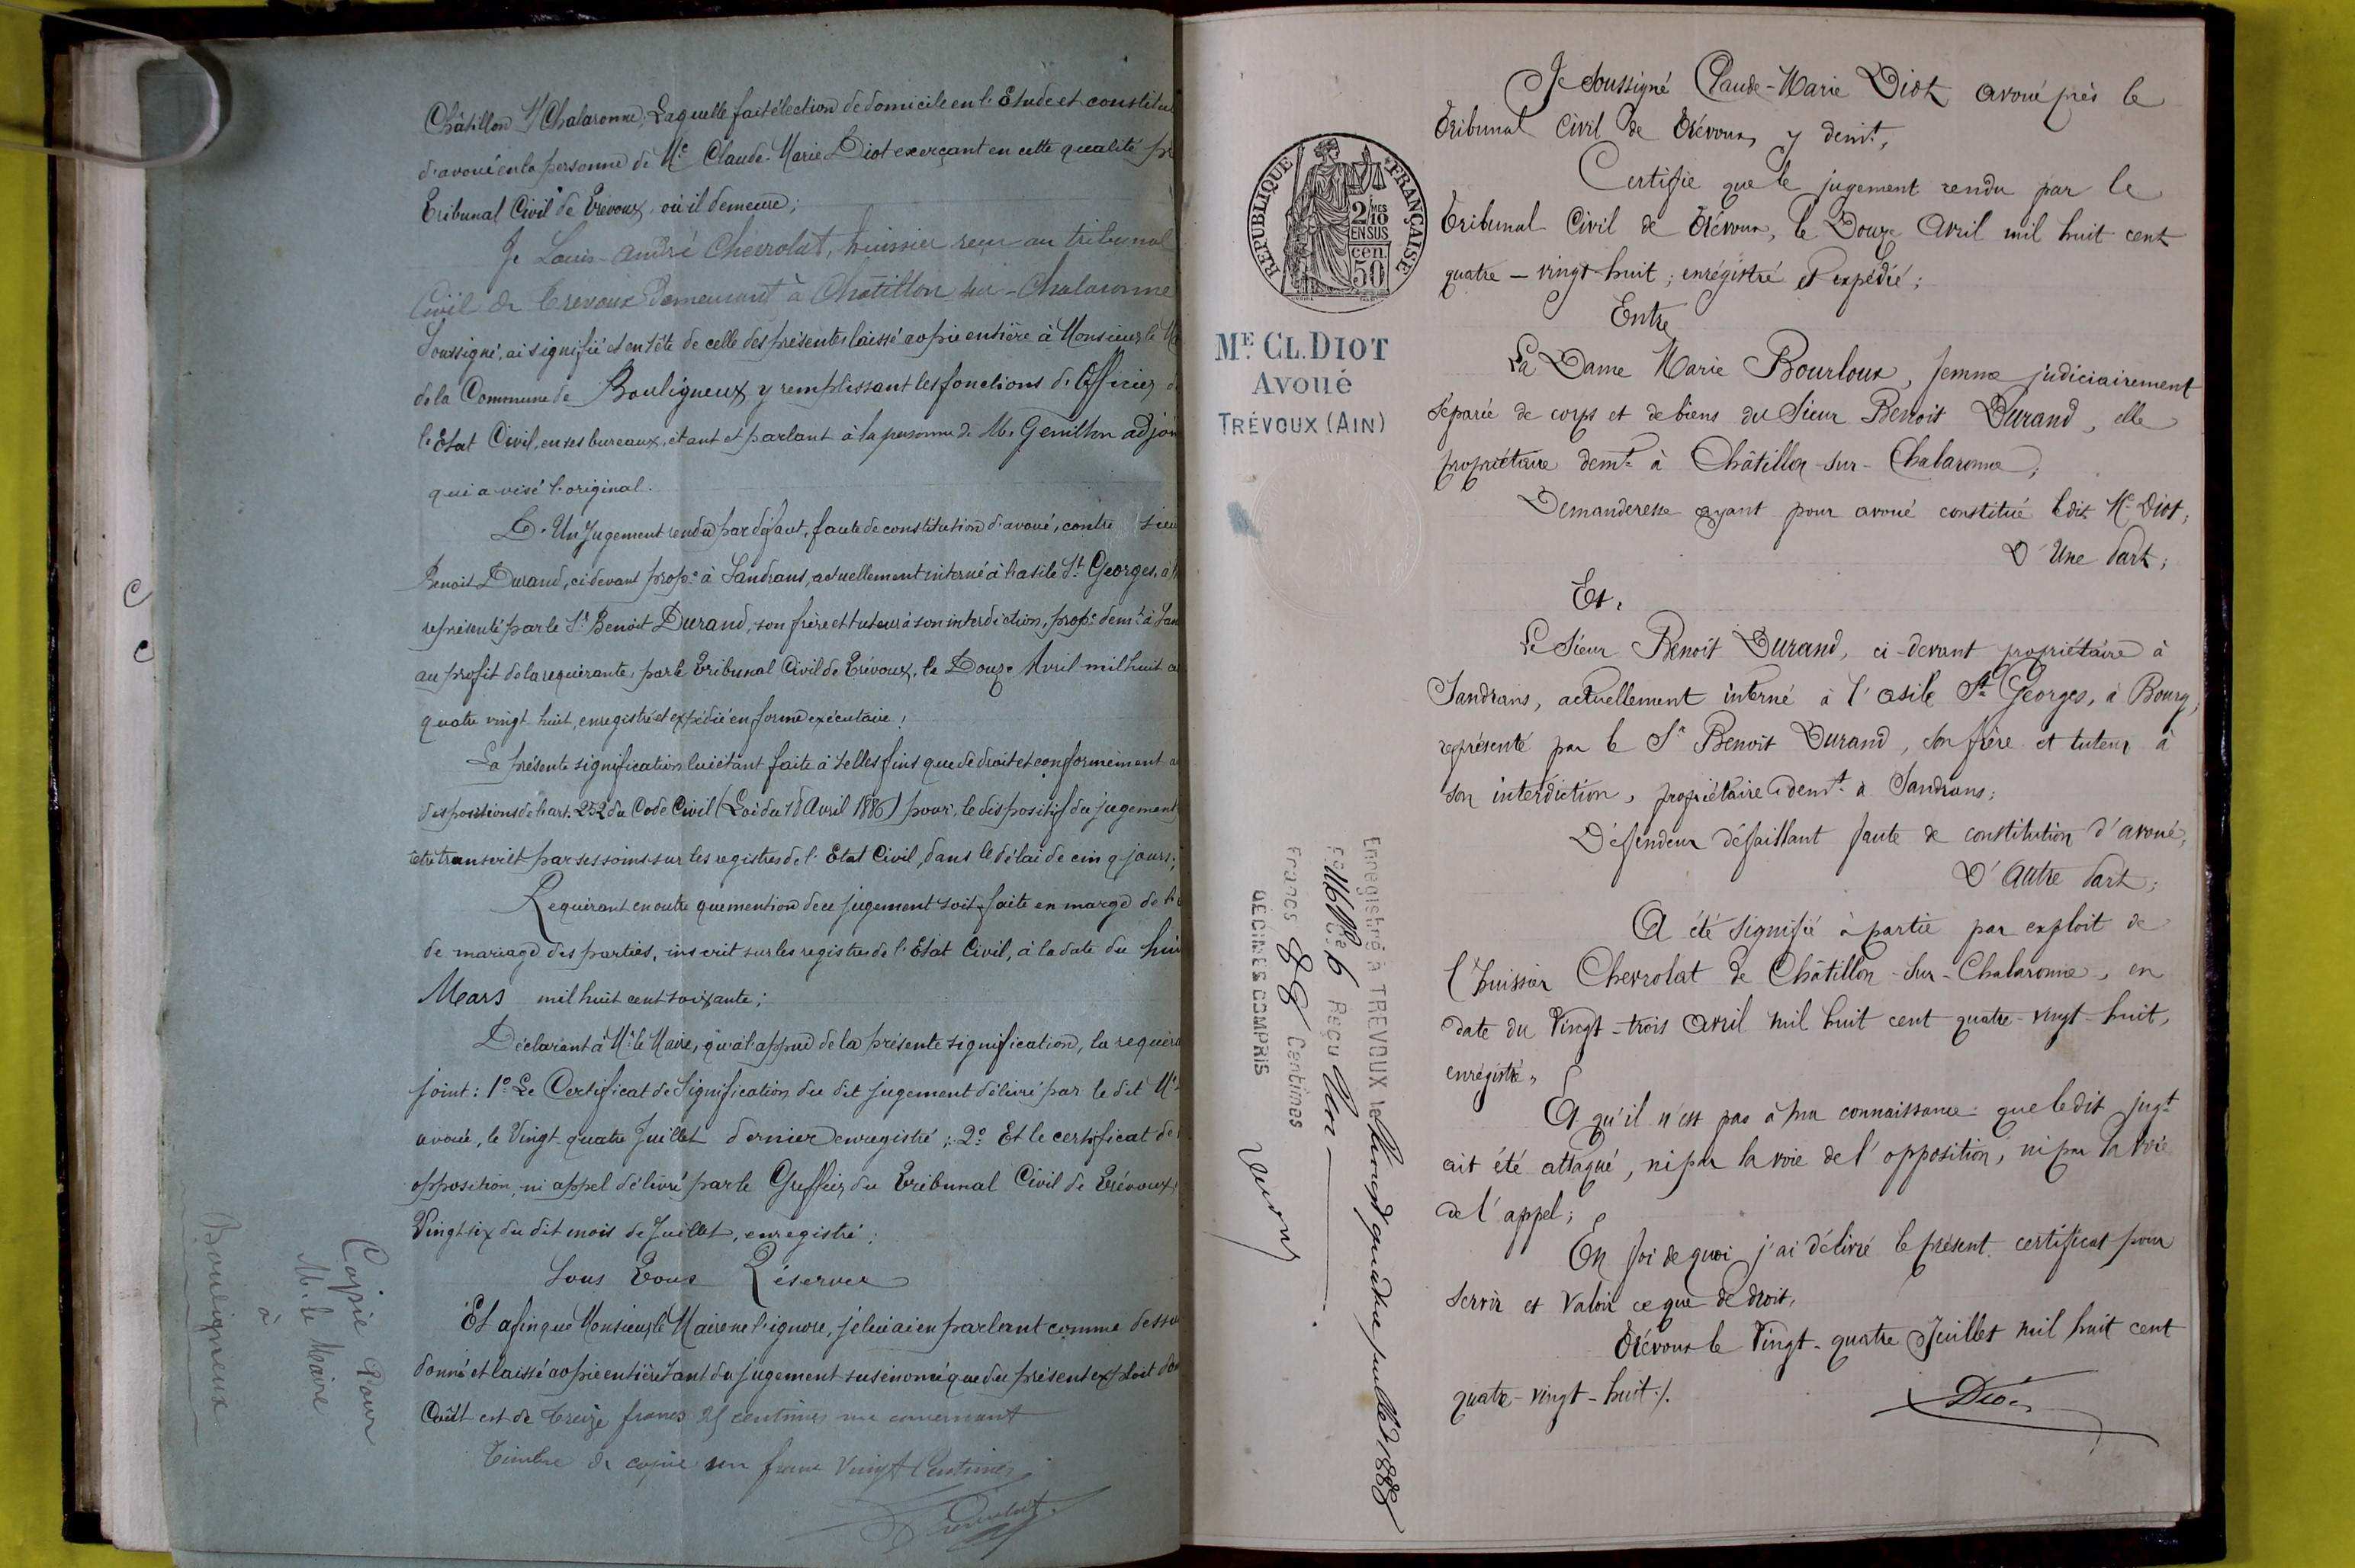 Châtillon s/ Chalaronne; Laquelle fait élection de domicile en l'Etude et constitue
d'avoué en la personne de Me Claude-Marie Diot exerçant en cette qualité pr
Tribunal Civil de Trévoux, où il demeure;
Je Louis-André Chevrolat, huissier reçu au tribunal
Civil de Trevoux demeurant à Châtillon sur-Chalaronne
Soussigné, ai signifié et en tête de celle des présentes laissé copie entière à Monsieur le M
de la Commune de Bouligneux y remplissant les fonctions de l'Officier d
l'Etat Civil, en ses bureaux, étant et parlant à la personne de Mr Genillon adjoi
qui a visé l'original.
D'Un Jugement rendu par défaut, faute de constitution d'avoué, contre sieu
Benoit Durand, ci devant prop.e à Sandrans, actuellement interné à l'asile St Georges, à
représenté par le Sr Benoit Durand, son frère et tuteur à son interdiction, prop.e demt à San
au profit de la requérante, par le Tribunal Civil de Trévoux, le Douze Avril mil huit ce
quatre vingt huit, enregistré et expédié en forme exécutoire;
La présente signification lui étant faite à telles fins que de droit et conformément a
dispositions de l'art. 252 du Code Civil (Loi du 18 Avril 1886) pour, le dispositif du jugement
être transcrit par ses soins sur les registres de l'Etat Civil, dans le délai de cinq jours;
Requérant en outre que mention de ce jugement soit faite en marge de l'a
de mariage des parties, inscrit sur les registres de l'Etat Civil, à la date du hui
Mars mil huit cent soixante;
Déclarant à Mr le Maire, qu'à l'appui de la présente signification, la requéra
joint: 1° Le Certificat de Signification du dit jugement délivré par le dit Me
avoué, le Vingt-quatre Juillet dernier enregistré; 2° Et le certificat de
opposition, ni appel délivré par le Greffier du Tribunal Civil de Trévoux,
Vingt six du dit mois de Juillet, enregistré;
Sous Tous Réserves
Et afin que Monsieur le Maire ne l'ignore, je lui ai en parlant comme dessu
donné et laissé copie entière tant du jugement susénoncé que du présent exploit don
Coût est de treize francs 25 centimes
Timbre de copie un franc Vingt Centimes
Chevrolat
Copie Pour
Mr. le Maire
à
Bouligneux
C
C
REPUBLIQUE FRANÇAISE
2/10MES
EN SUS
cen.
50
ME. CL. DIOT
Avoué
TRÉVOUX (AIN)
Enregistré à TREVOUX le vingt quatre juillet 1888
Reçu Un
Francs 88 Centimes
DÉCIMES COMPRIS
Je soussigné Claude-Marie Diot avoué près le
Tribunal Civil de Trévoux, y demt,
Certifie que le jugement rendu par le
Tribunal Civil de Trévoux, le Douze Avril mil huit cent
quatre-vingt huit; enrégistré et expédié;
Entre
La Dame Marie Bourloux, femme judiciairement
séparée de corps et de biens du Sieur Benoit Durand, elle
propriétaire demt à Châtillon-sur-Chalaronne;
Demanderesse ayant pour avoué constitué ledit Me Diot;
D'Une Part;
Et,
Le Sieur Benoit Durand, ci-devant propriétaire à
Sandrans, actuellement interné à l'asile St Georges, à Bourg,
représenté par le Sr Benoit Durand, son frère et tuteur à
son interdiction, propriétaire demt à Sandrans;
Défendeur défaillant faute de constitution d'avoué,
D'Autre Part;
A été signifié à partie par exploit de
l'huissier Chevrolat de Châtillon-sur-Chalaronne, en
date du Vingt-trois Avril mil huit cent quatre-vingt-huit,
enrégistré,
Et qu'il n'est pas à ma connaissance que ledit jugt
ait été attaqué, ni par la voie de l'opposition, ni par la voie
de l'appel;
En foi de quoi j'ai délivré le présent certificat pour
servir et valoir ce que de droit,
Trévoux le Vingt-quatre Juillet mil huit cent
quatre-vingt-huit./.
Diot